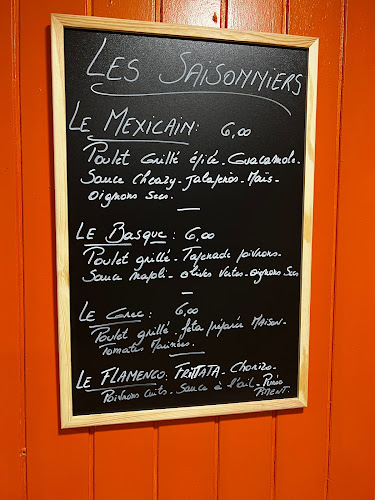 LES SAISONNIERS
LE MEXICAIN: 6,00
Poulet Grillé épicé - Guacamole -
Sauce Cheazy - Jalapenos - Maïs -
Oignons Secs.
LE BASQUE: 6,00
Poulet grillé - Tapenade poivrons -
Sauce napoli - olives vertes - oignons Secs
LE GREC: 6,00
Poulet grillé - feta préparée MAISON -
Tomates Marinées.
LE FLAMENCO: FRITTATA - Chorizo -
Poivrons Cuits - Sauce à l'ail - Purée
PIMENT.